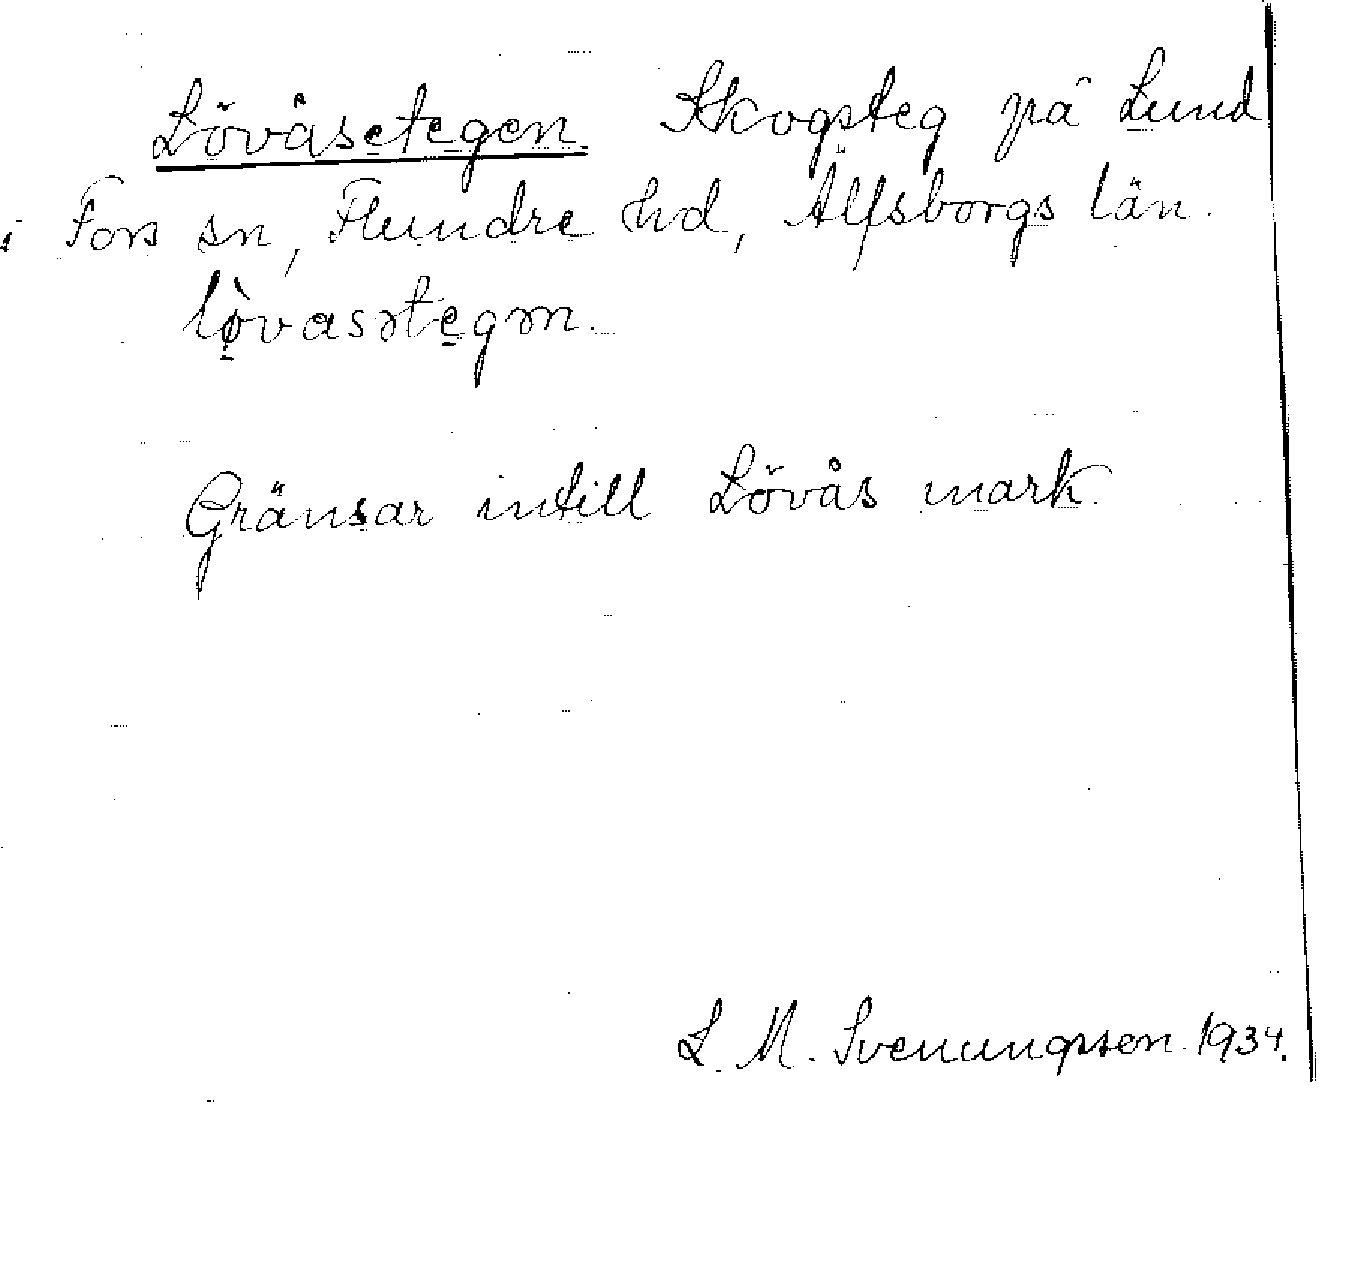 Lövåsetegen. Skogsteg på Lund
i Fors sn, Flundre hd, Älfsborgs län.
lø̀vasətegən.
Gränsar intill Lövås mark.
L. M. Svenungsson 1934.